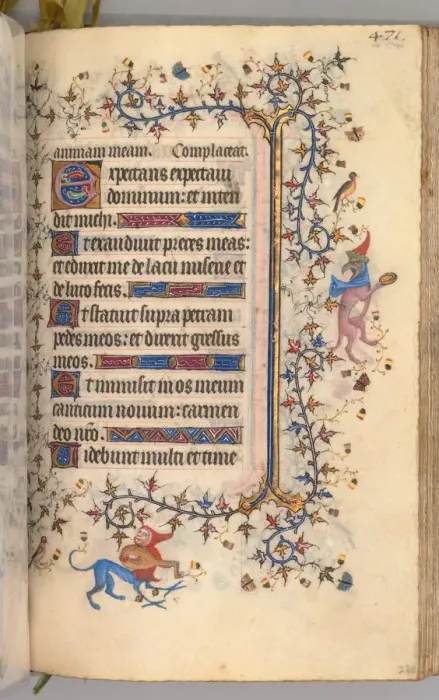 471.
animam meam. Complaceat.
Expectans expectavi
dominum: et inten
dit michi.
Et exaudivit preces meas:
et eduxit me de lacu miserie et
de luto fecis.
Et statuit supra petram
pedes meos: et direxit gressus
meos.
Et inmisit in os meum
canticum novum: carmen
deo nr̃o.
Videbunt multi et time